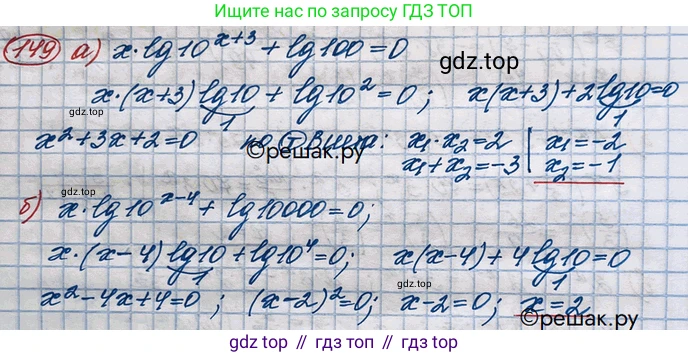 Ищите нас по запросу ГДЗ ТОП
149 а) x·lg10^(x+3) + lg100 = 0
gdz.top
x·(x+3) lg10 + lg10² = 0 ; x(x+3) + 2 lg10 = 0
1 1
x² + 3x + 2 = 0 по т Виета: x₁·x₂ = 2 | x₁ = -2
©решак.ру x₁ + x₂ = -3 | x₂ = -1
gdz.top
б) x·lg10^(x-4) + lg10000 = 0;
x·(x-4) lg10 + lg10⁴ = 0; x(x-4) + 4 lg10 = 0
1 1
x² - 4x + 4 = 0 ; (x-2)² = 0; x-2 = 0; x = 2
©решак.ру
gdz.top // гдз.топ // гдз топ // gdz top